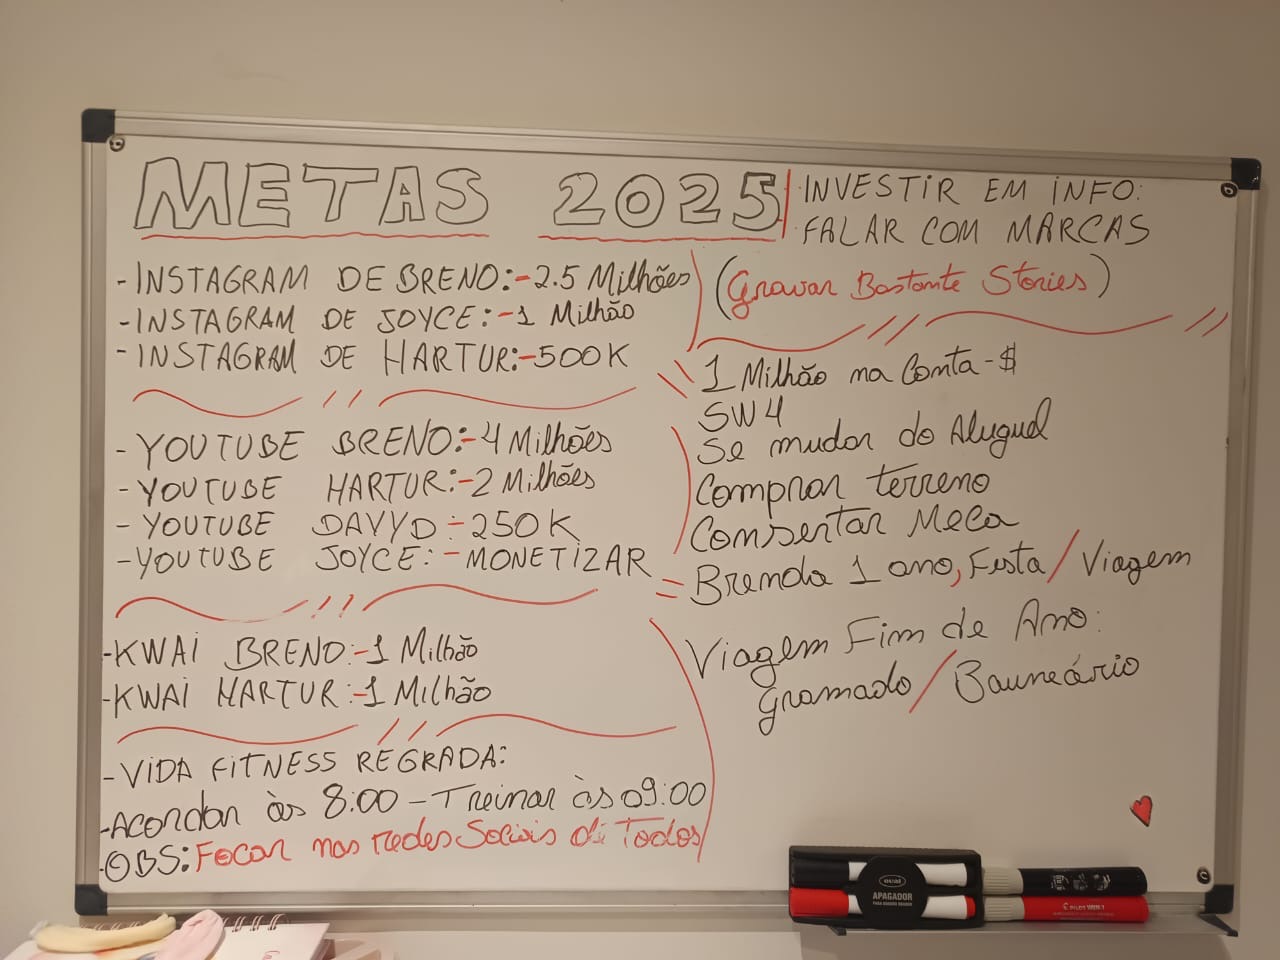 METAS 2025
- INSTAGRAM DE BRENO:-2.5 Milhões
-INSTAGRAM DE JOYCE:-1 Milhão
- INSTAGRAM DE HARTUR:-500K
- YOUTUBE BRENO:-4 Milhões
- YOUTUBE HARTUR:-2 Milhões
- YOUTUBE DAVYD-250K
-YOUTUBE JOYCE:-MONETIZAR
-KWAI BRENO:-1 Milhão
-KWAI HARTUR:-1 Milhão
-VIDA FITNESS REGRADA:
-Acordar às 8:00-Treinar às 09:00
-OBS: Focar nas redes Sociais de Todos
INVESTIR EM INFO:
FALAR COM MARCAS
(Gravar Bastante Stories)
1 Milhão na Conta-$
SW4
Se mudar do Aluguel
Comprar terreno
Consertar Meca
Brenda 1 ano, Festa/Viagem
Viagem Fim de Ano:
Gramado/Bauneário
APAGADOR
PARA QUADRO BRANCO
PILOT WBM-7